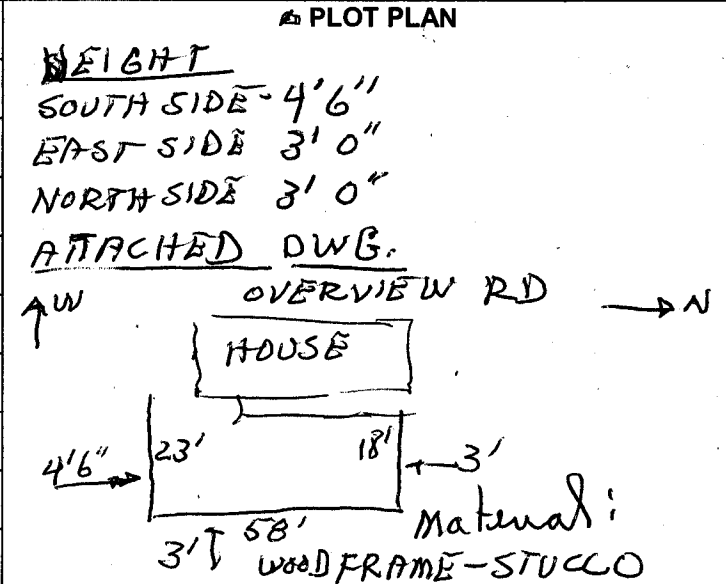 PLOT PLAN
HEIGHT
SOUTH SIDE - 4'6"
EAST SIDE 3' 0"
NORTH SIDE 3' 0"
ATTACHED DWG.
W OVERVIEW RD N
HOUSE
4'6" 23' 18' 3'
3' 58' Material:
WOOD FRAME - STUCCO